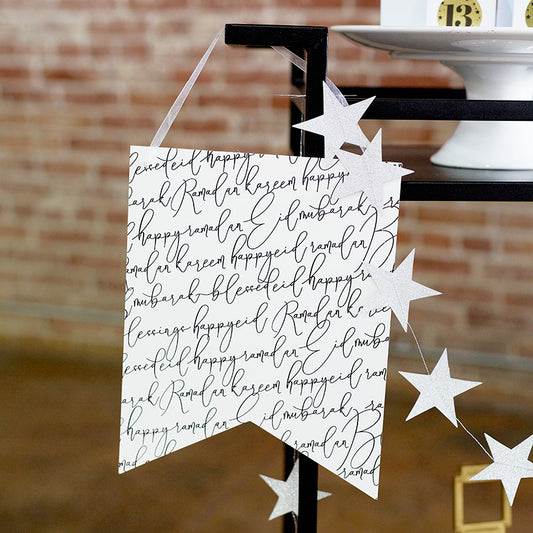 13
blessed eid happy
arak Ramadan kareem happy
happy ramadan Eid mubarak
ramadan kareem happy eid ramadan
mubarak blessed eid happy
blessings happy eid Ramadan
blessed eid happy ramadan Eid
arak Ramadan kareem happy eid ram
happy ramadan Eid mubarak
ramadan B
ramada